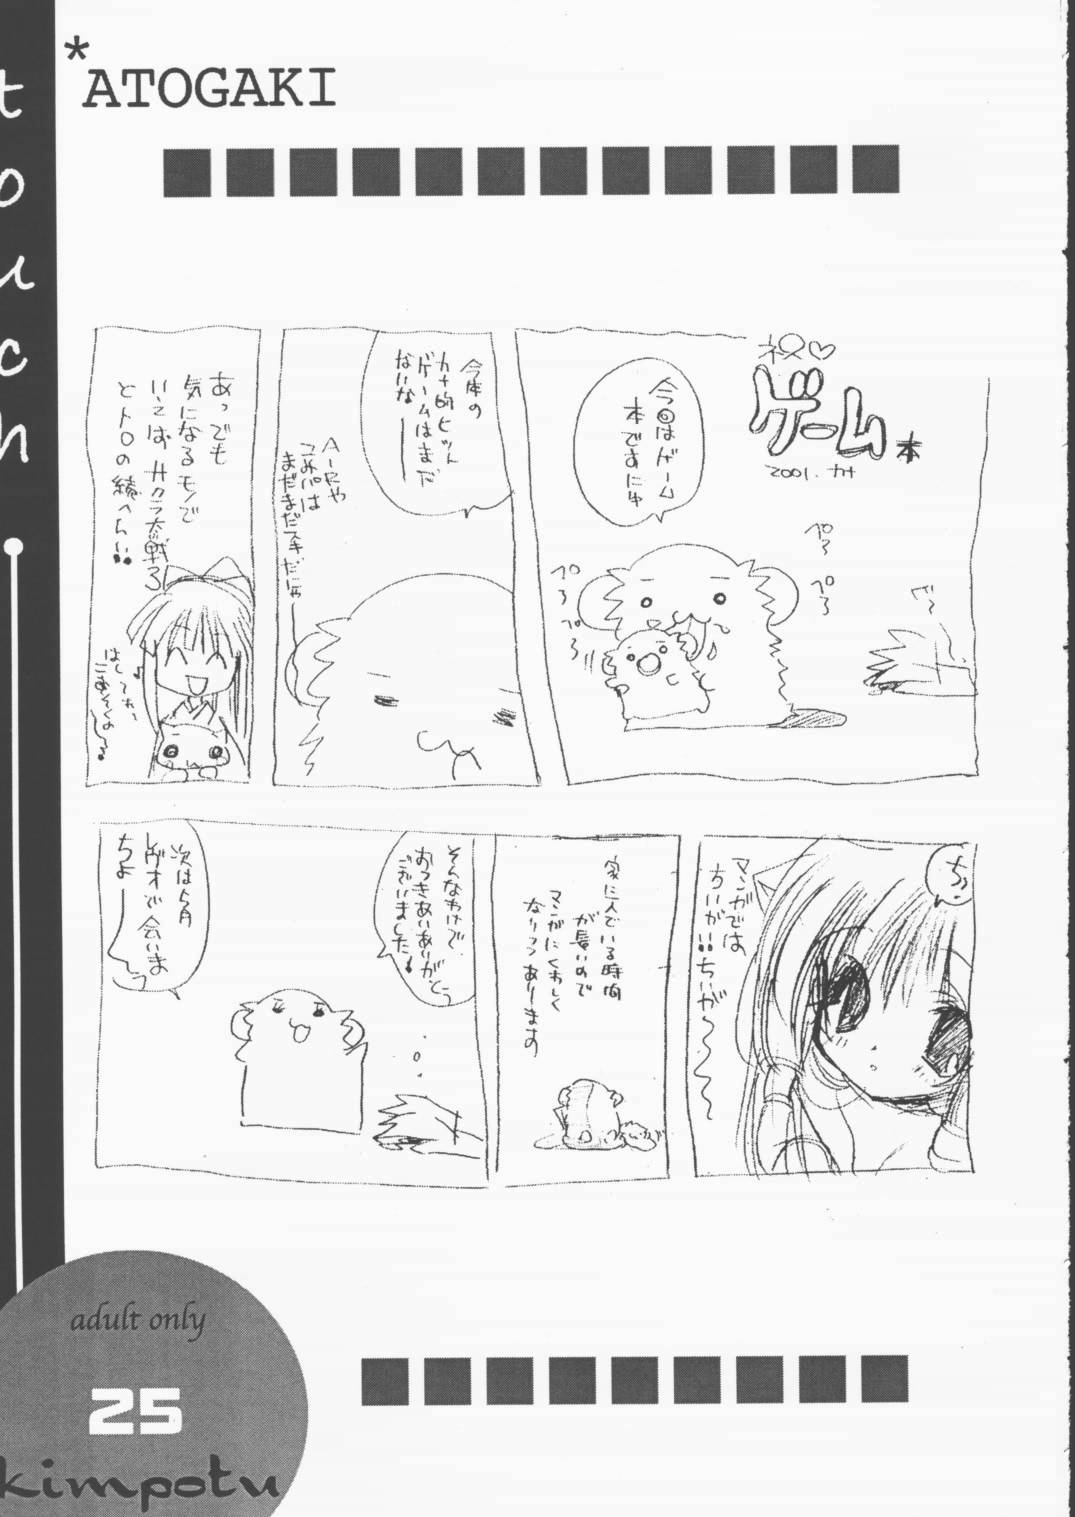 *ATOGAKI
touch
祝♡
ゲーム本
2001.カナ
今回はゲーム
本ですにゅ
ペろ
ペろ
ペろ
ペろ
ビ〜
今年の
カナ的ヒット
ゲームはまだ
ないな――
まだまだスキだにゅ――
あっても
気になるモノで
いえばサクラ大戦3
とトロの続へん!!
ち?
マンガでは
ちいがい!!ちいが〜〜
家に人でいる時間
が長いので
マンガにくわしく
なりつつあります
そんなわけで
おつきあいありがとう
ございました!
次は5月
レヴォで会いま
ちょ――
adult only
25
kimpotu